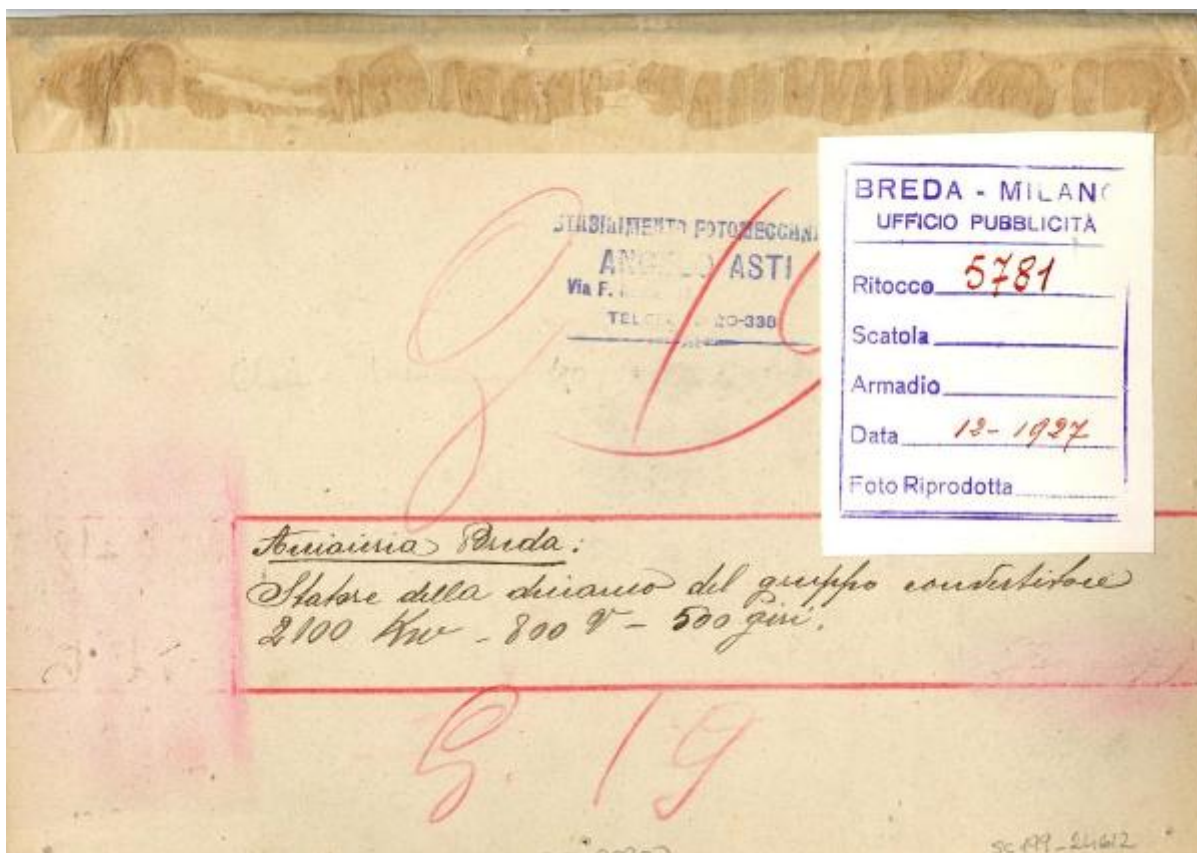 STABILIMENTO FOTOMECCANI
ASTI
Via F.
20-338
BREDA - MILANO
UFFICIO PUBBLICITÀ
Ritocco 5781
Scatola
Armadio
Data 12-1927
Foto Riprodotta
Acciaieria Breda:
Statore della dinamo del gruppo convertitore
2100 Kw - 800 V - 500 giri.
G. 19
SC 199-24612